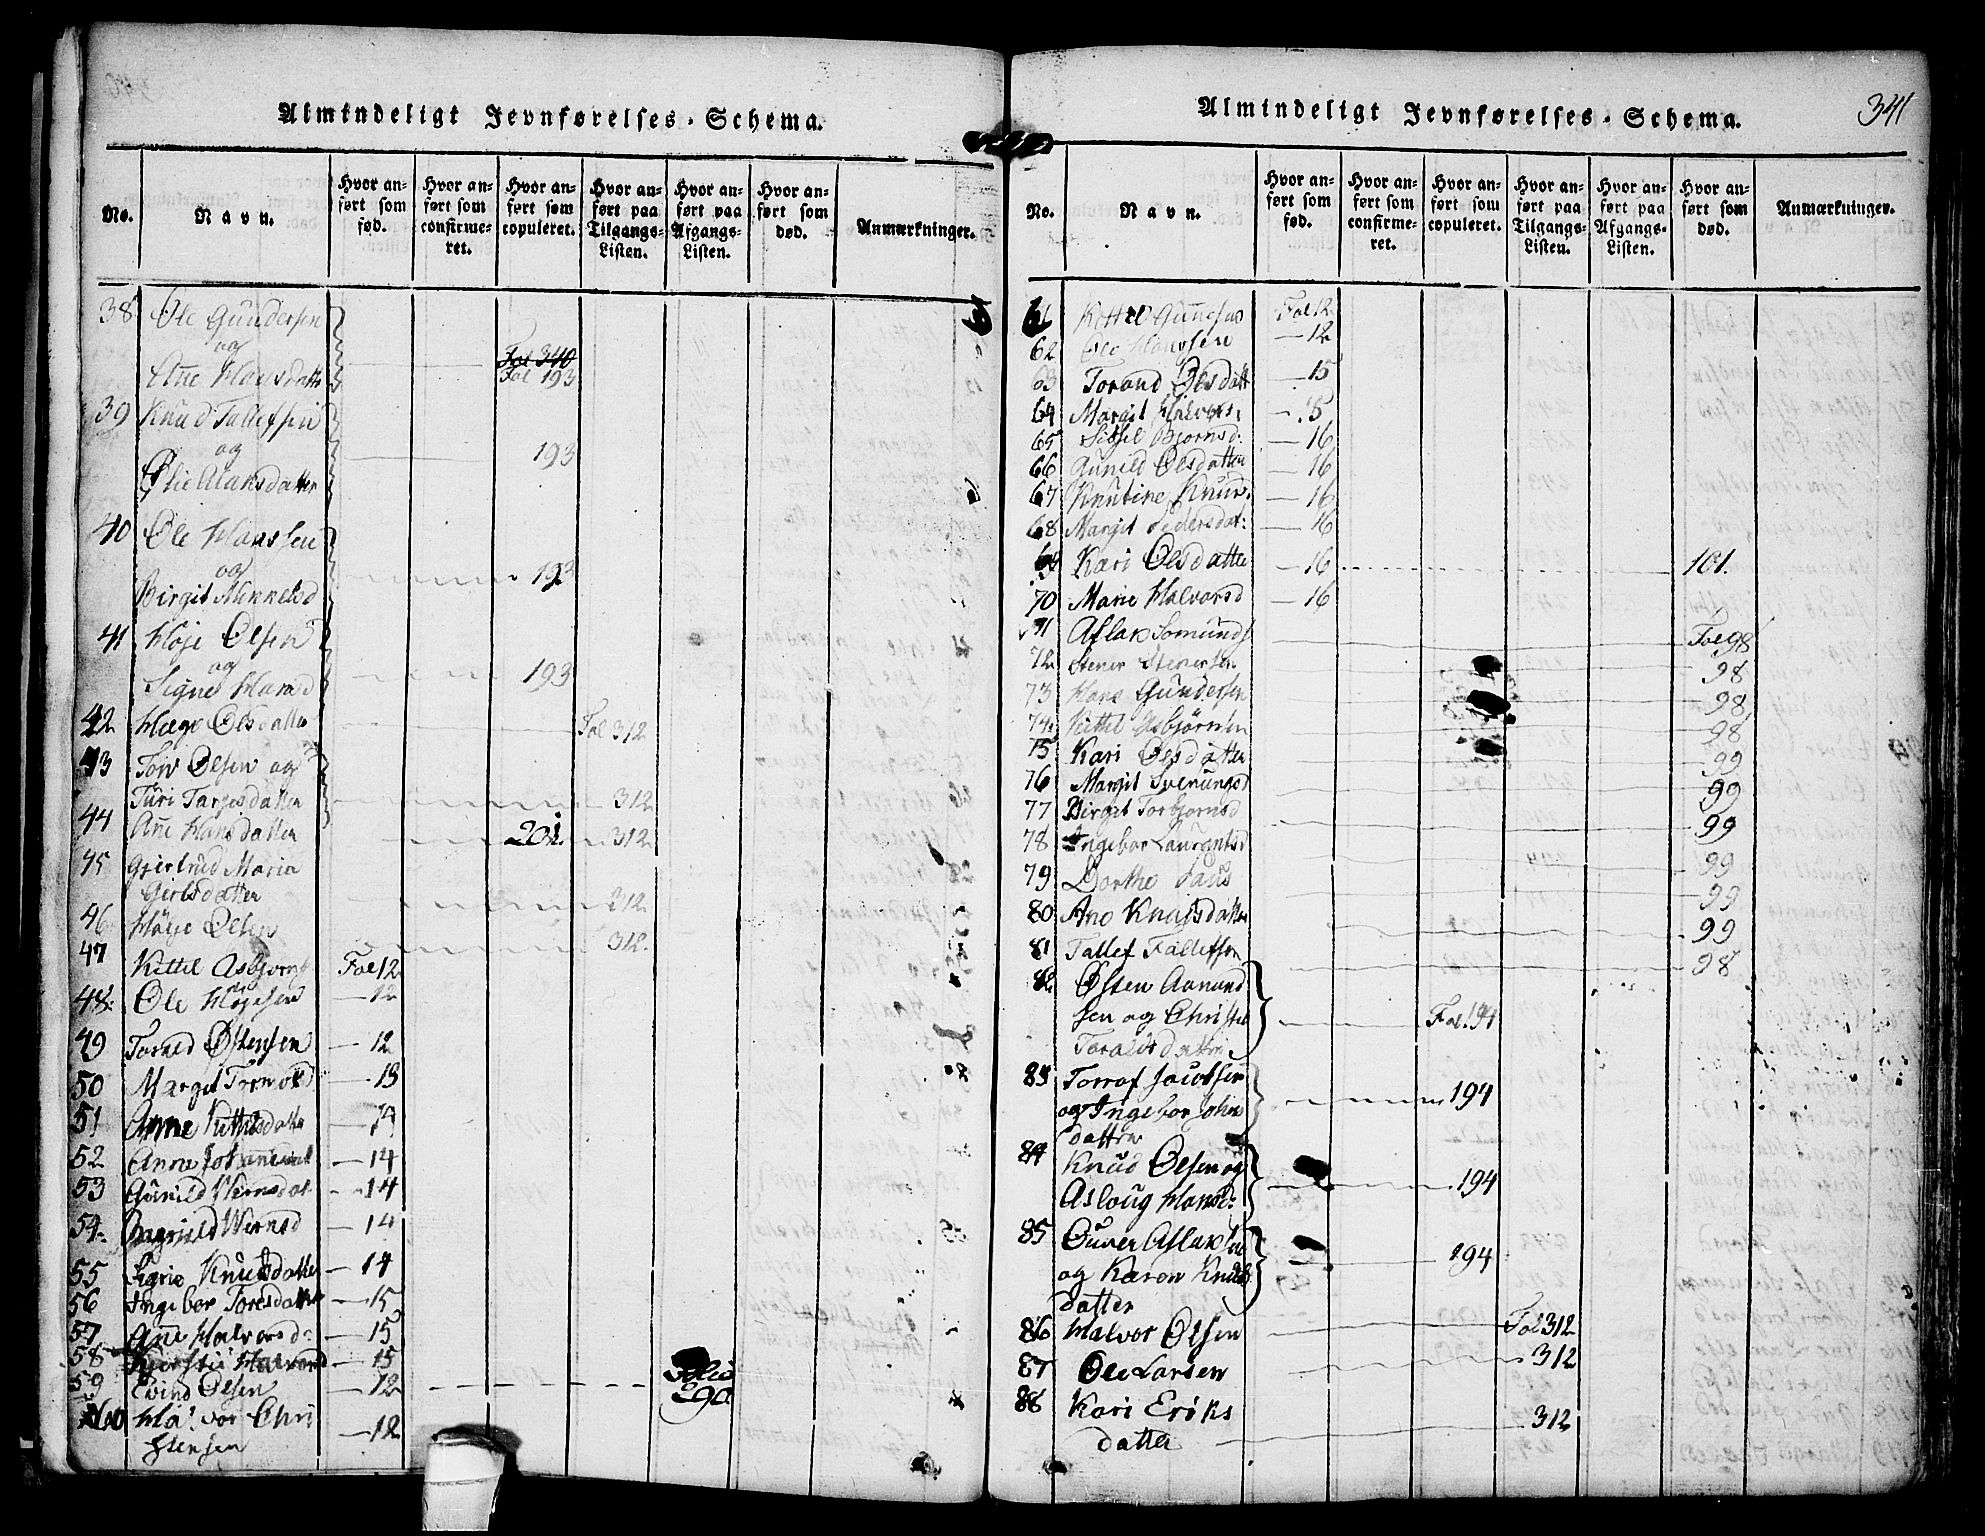 Almindeligt Jevnførelses-Schema.
No. Navn. Hvor anført som fød. Hvor anført som confirmeret. Hvor anført som copuleret. Hvor anført paa Tilgangs-Listen. Hvor anført paa Afgangs-Listen. Hvor anført som død. Anmærkninger.
38 Ole Gundersen
og Fol 340
Ane Hansdatte Fol 193
39 Knud Tallefsen
og 193
Olie Hansdatter
40 Ole Hanssen
og 193
Birgit
41 Høje Olsen
og
Signe 193
42 Hæge Olsdatter Fol 312
43 Tov Olsen og
Turi Targesdatter 312
44 Ane Hansdatter 201. 312
45 Gjertrud Maria
312
46 Høije Olsen 312.
47 Kittel Asbjorns Fol 12
48. Ole Høgesen 12
49 Torned Østensen 12
50 Margit 13
51 Anne Kittelsdatter 14
52 Anne 14
53 Gunild 14
54. Wernsd 14
55 Sigrie Knudsdatter 14
56 Ingebor Toresdatter 15
57 Ane Halvorsd: 15
58 Kjerstie Halvord 15
59 Evind Olsen 12 Folio 290
60 Halvor Chri
stensen 12
Almindeligt Jevnførelses-Schema. 341
No. Navn. Hvor anført som fød. Hvor anført som confirmeret. Hvor anført som copuleret. Hvor anført paa Tilgangs-Listen. Hvor anført paa Afgangs-Listen. Hvor anført som død. Anmærkninger.
61 Kittel Fol 12
62 Ole Hanssen 12
63 Torand Olsdatt 15
64 Margit Halvors. 15
65 Sissel Bjornsd: 16
66 Gunild Olsdatter 16
67 Knutine Knuds. 16
68 Margit Pedersdat: 16
69 Kari Olsdatter 16 101.
70 Marie Halvorsd 16
71 Aslak Somunds Fol 98
72 Stener Stenersen 98
73 Hans Gundersen 98
74. Kittel Asbjørnsen 98
75 Kari Olsdatter 99
76 Margit Sveinungsd 99
77 Birgit Torbjornsd 99
78 Ingebor Laurantsd 99
79 Dorthe Paus 99
80 Ane Knudsdatter 99
81 Tallef Tallefsen 98
82 Østen Aanund
sen og Christi Fol. 194
datter
83 Torrof Jacobsen
og Ingebor John 194
datter
84 Knud Olsen og
Asloug Hansd: 194
85 Ouver Aslaksen
og Karen Knuds 194
datter
86 Halvor Olsen Fol 312
87 Ole Larsen 312
88 Kari Eriks
datter 312